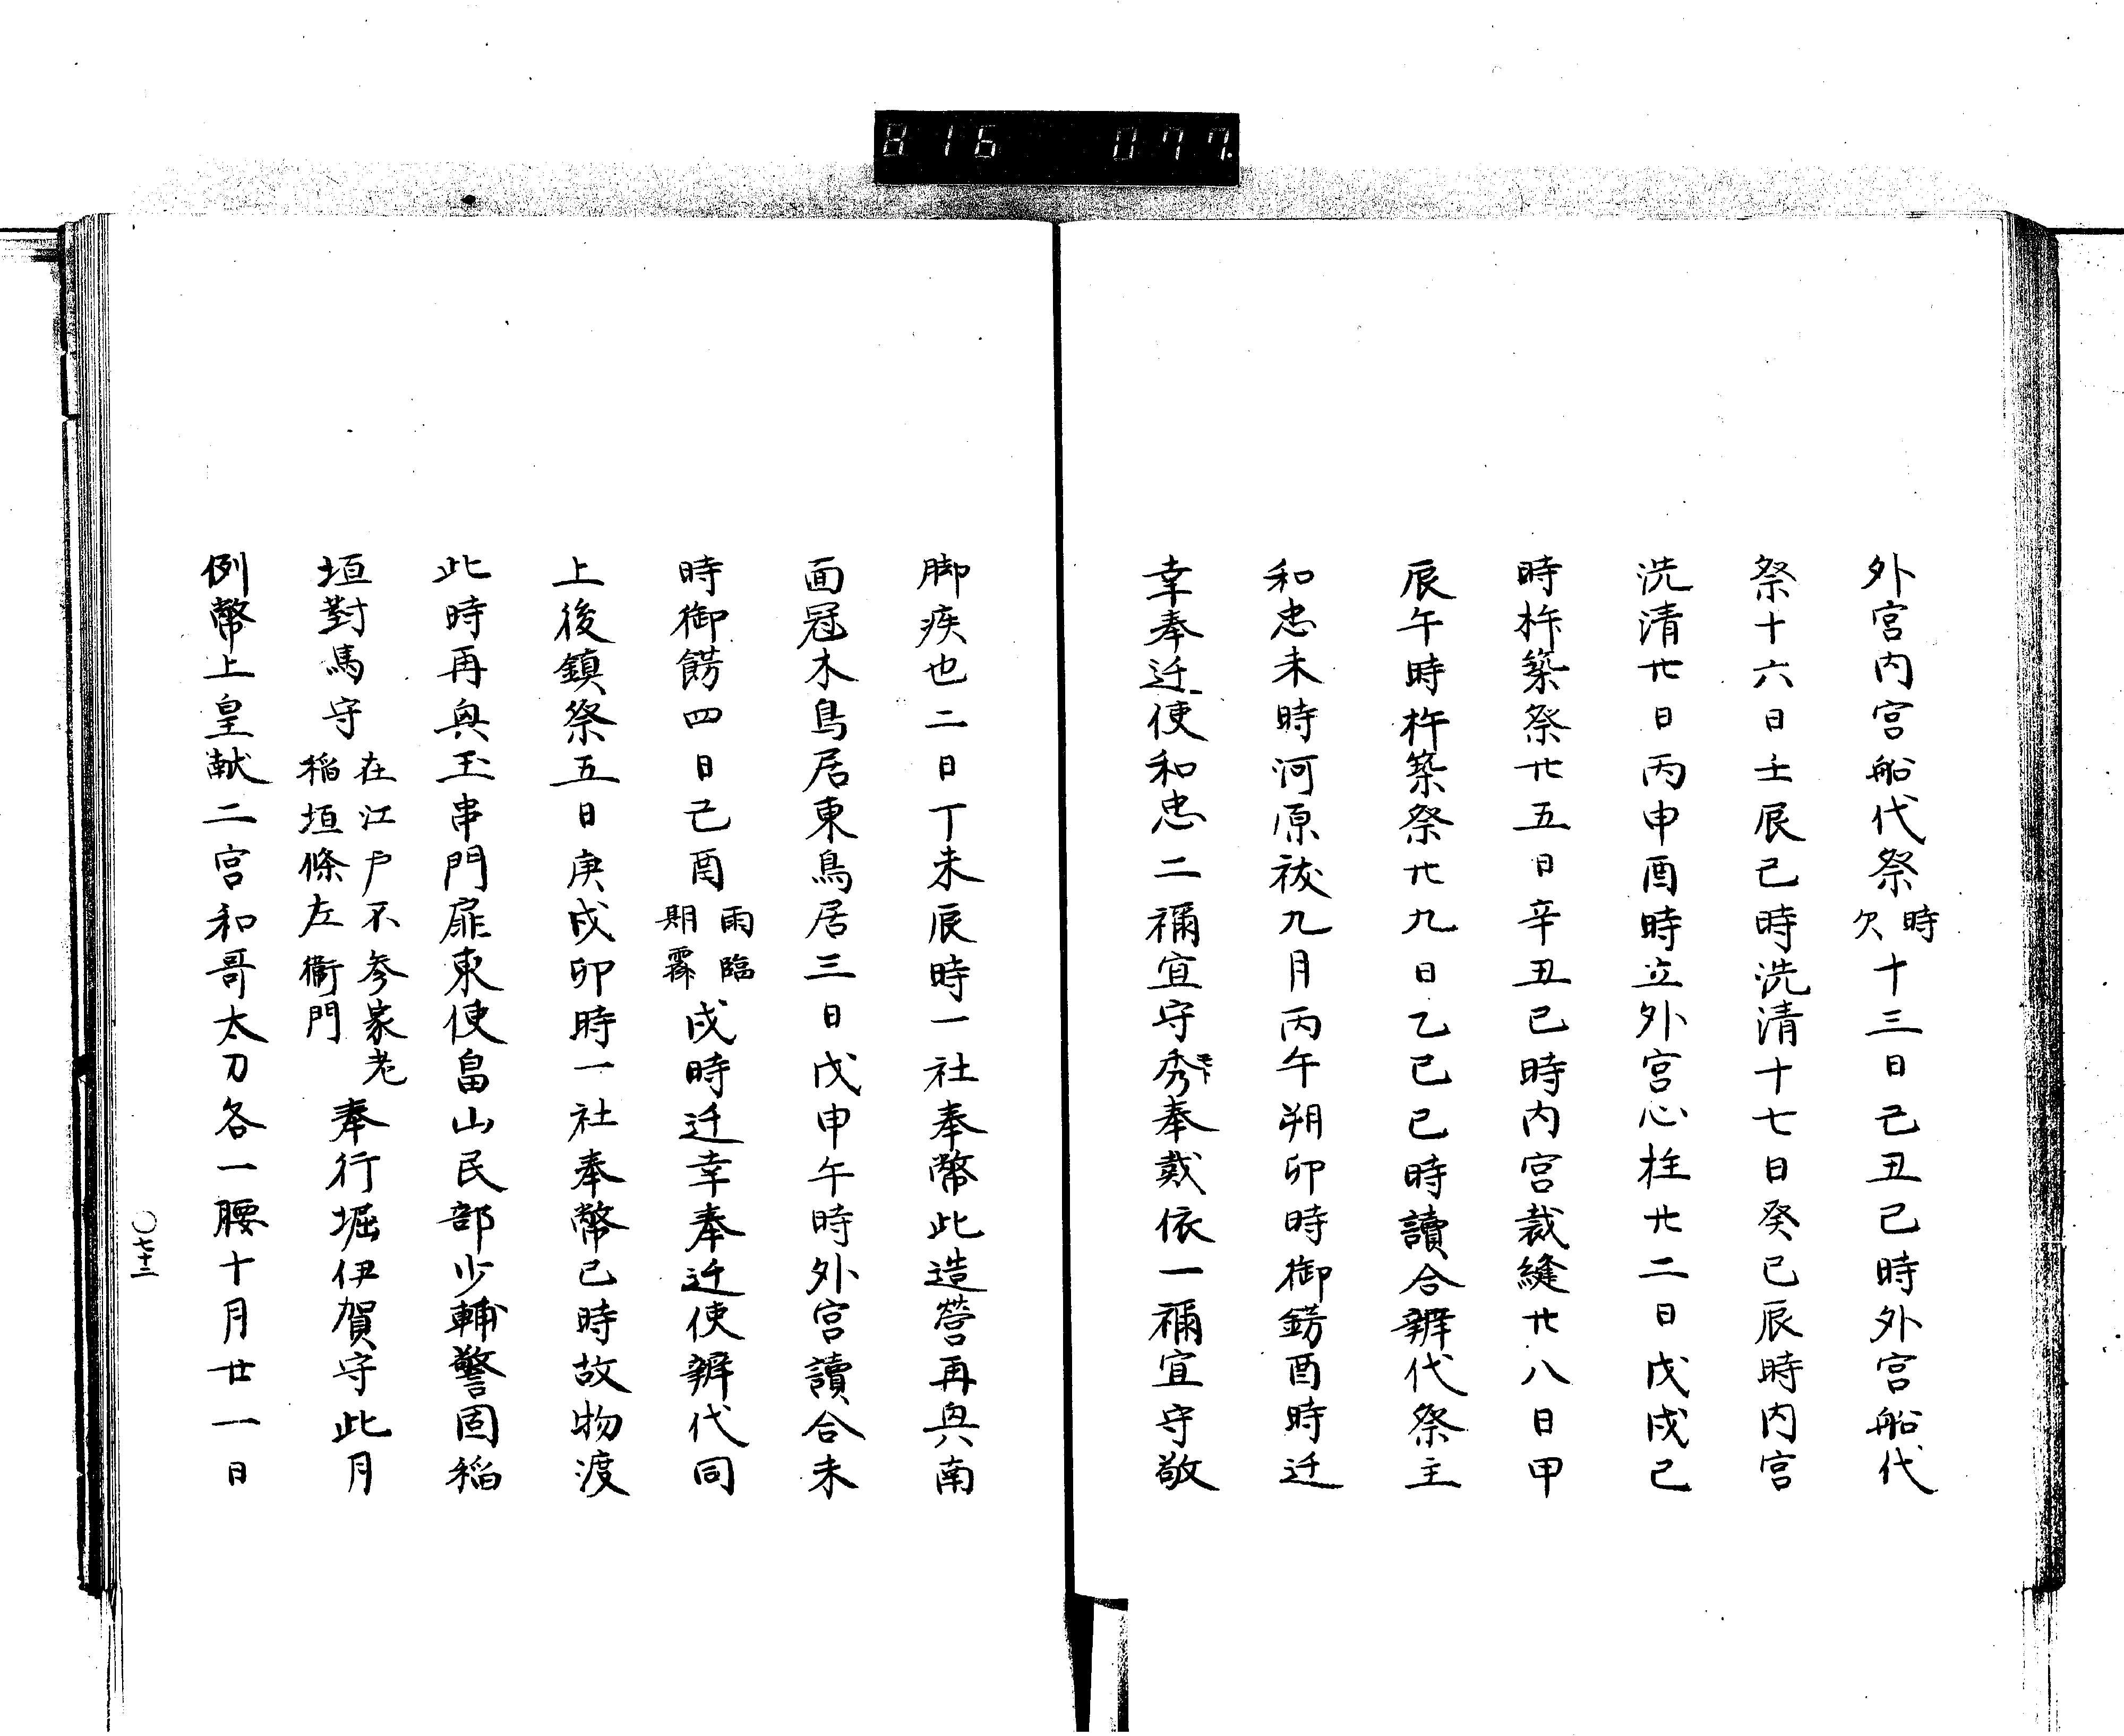 816 077.
外宮内宮船代祭時欠十三日己丑巳時外宮船代
祭十六日壬辰巳時洗清十七日癸巳辰時内宮
洗清廿日丙申酉時立外宮心柱廿二日戊戌巳
時杵築祭廿五日辛丑巳時内宮裁縫廿八日甲
辰午時杵築祭廿九日乙巳巳時讀合辨代祭主
和忠未時河原祓九月丙午朔卯時御餝酉時迁
幸奉迁使和忠二禰宜守秀奉戴依一禰宜守敬
脚疾也二日丁未辰時一社奉幣此造營再興南
面冠木鳥居東鳥居三日戊申午時外宮讀合未
時御餝四日己酉雨臨期霽戌時迁幸奉迁使辨代同
上後鎮祭五日庚戌卯時一社奉幣巳時故物渡
此時再興玉串門扉東使畠山民部少輔警固稲
垣對馬守在江戸不参家老稲垣條左衛門奉行堀伊賀守此月
例幣上皇献二宮和哥太刀各一腰十月廿一日
〇七十二